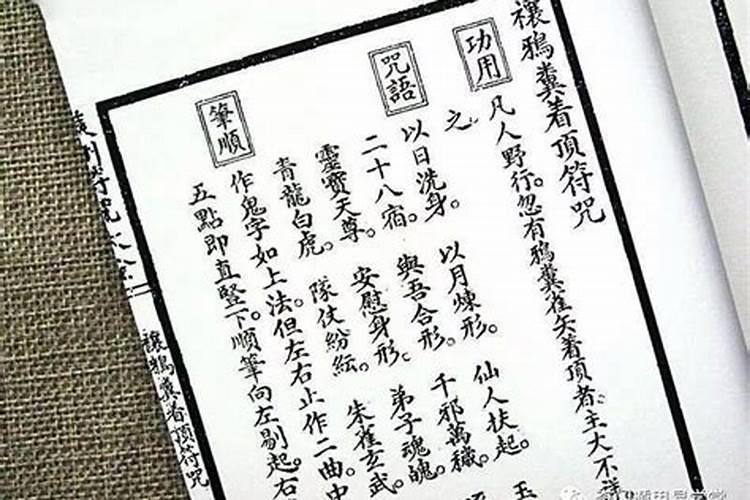 禳鴉糞着頂符咒
功用
凡人野行。忽有鴉糞雀矢着頂者。主大不祥
之
咒語
以日洗身。以月煉形。仙人扶起。玉
二十八宿。與吾合形。千邪萬穢。
靈寶天尊。安慰身形。弟子魂魄。
青龍白虎。隊仗紛紜。朱雀玄武。
筆順
作鬼字如上法。但左右止作二曲。中
五點即直豎下。順筆向左剔起。右
禳鴉糞着頂符咒